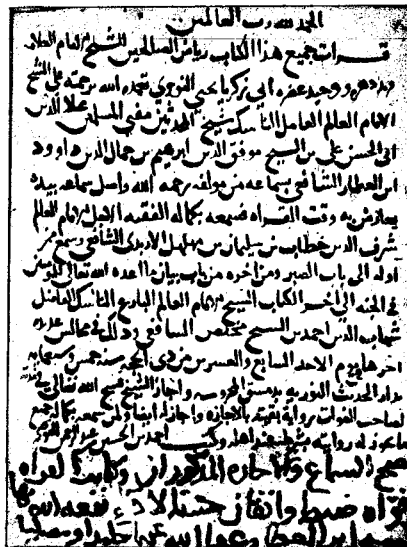 الحمد لله رب العالمين
قرات جميع هذا الكتاب رياض الصالحين للشيخ الامام العلامه
ووحيد عصره ابي زكريا يحيي النووي تغمده الله برحمته علي الشيخ
الامام العالم العامل الناسك شيخ المحدثين مفتي المسلمين علا الدين
ابي الحسن علي بن الشيخ موفق الدين ابرهيم بن جمال الدين داوود
ابن العطار الشافعي بسماعه من مولفه رحمه الله واصل سماعه بيده
يعارض به وقت القراه فسمعه بكماله الفقيه الامام العالم
شرف الدين خطاب بن سليمان بن مهلهل الاربدي الشافعي وسمع من
اوله الي باب الصبر ومن اخره من باب بيان ما اعده الله تعالي للمومنين
في الجنه الي اخر الكتاب الشيخ الامام العالم البارع الناسك الفاضل
شهاب الدين احمد بن الشيخ الشافعي وذلك في مجالس
اخرها يوم الاحد السابع والعشرين من ذي الحجه سنه خمس وسبعمايه
بدار الحديث النوريه بدمشق المحروسه واجاز الشيخ فسح الله تعالي في
لصاحب الفوات روايه بقيته بالاجازه واجاز ايضا لمن سمعه بكماله جميع
ما يجوز له روايته بشرطه عند اهله وكتب احمد بن
صح السماع والاجازه المذكوران وكاتبه القراه
قراه ضبط واتقان نفعه الله بها
بن العطار عفا الله عنه حامدا ومصليا